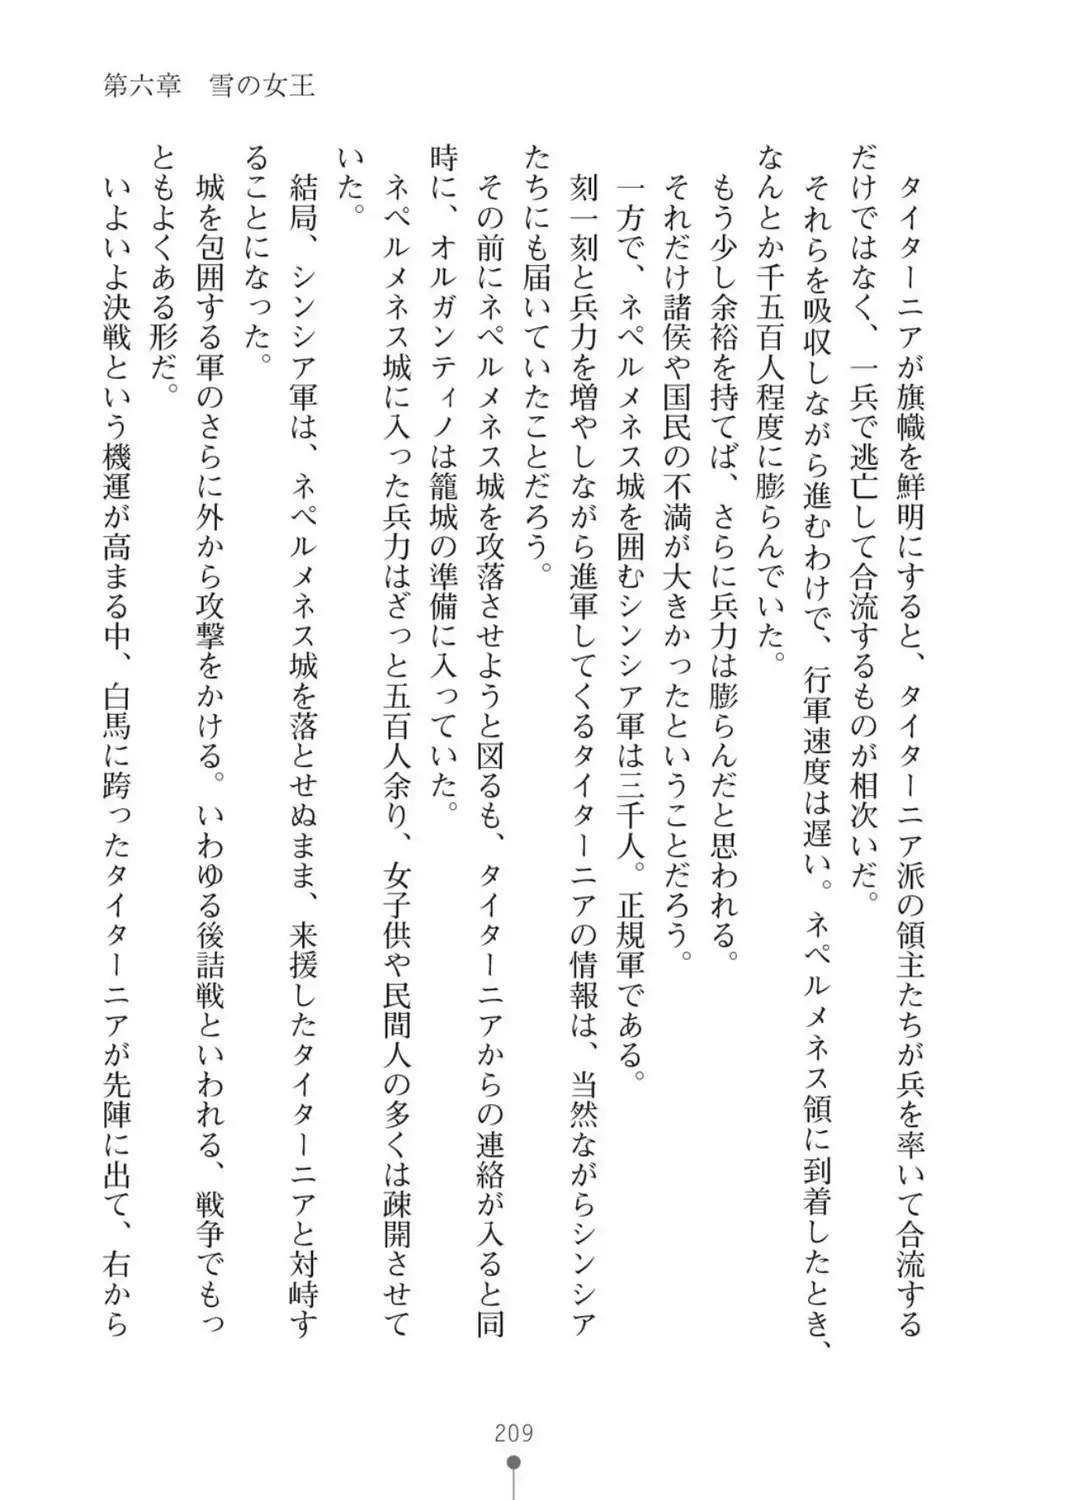 第六章　雪の女王
　タイターニアが旗幟を鮮明にすると、タイターニア派の領主たちが兵を率いて合流する
だけではなく、一兵で逃亡して合流するものが相次いだ。
　それらを吸収しながら進むわけで、行軍速度は遅い。ネペルメネス領に到着したとき、
なんとか千五百人程度に膨らんでいた。
　もう少し余裕を持てば、さらに兵力は膨らんだと思われる。
　それだけ諸侯や国民の不満が大きかったということだろう。
　一方で、ネペルメネス城を囲むシンシア軍は三千人。正規軍である。
　刻一刻と兵力を増やしながら進軍してくるタイターニアの情報は、当然ながらシンシア
たちにも届いていたことだろう。
　その前にネペルメネス城を攻落させようと図るも、タイターニアからの連絡が入ると同
時に、オルガンティノは籠城の準備に入っていた。
　ネペルメネス城に入った兵力はざっと五百人余り、女子供や民間人の多くは疎開させて
いた。
　結局、シンシア軍は、ネペルメネス城を落とせぬまま、来援したタイターニアと対峙す
ることになった。
　城を包囲する軍のさらに外から攻撃をかける。いわゆる後詰戦といわれる、戦争でもっ
ともよくある形だ。
　いよいよ決戦という機運が高まる中、白馬に跨ったタイターニアが先陣に出て、右から
209